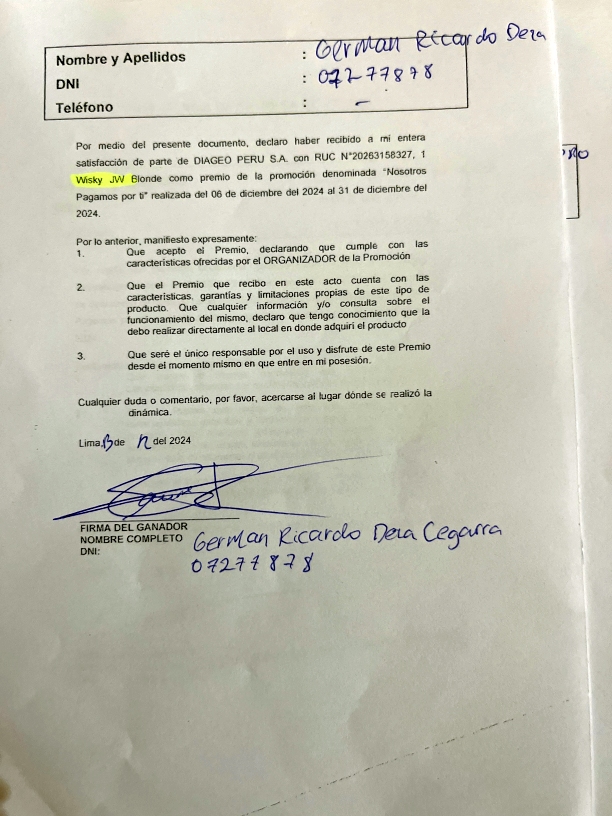 Nombre y Apellidos : German Ricardo Deza
DNI : 07277878
Teléfono : –
Por medio del presente documento, declaro haber recibido a mi entera
satisfacción de parte de DIAGEO PERU S.A. con RUC N°20263158327, 1
Wisky JW Blonde como premio de la promoción denominada "Nosotros
Pagamos por ti" realizada del 06 de diciembre del 2024 al 31 de diciembre del
2024.
Por lo anterior, manifiesto expresamente:
1. Que acepto el Premio, declarando que cumple con las
características ofrecidas por el ORGANIZADOR de la Promoción
2. Que el Premio que recibo en este acto cuenta con las
características, garantías y limitaciones propias de este tipo de
producto. Que cualquier información y/o consulta sobre el
funcionamiento del mismo, declaro que tengo conocimiento que la
debo realizar directamente al local en donde adquirí el producto
3. Que seré el único responsable por el uso y disfrute de este Premio
desde el momento mismo en que entre en mi posesión.
Cualquier duda o comentario, por favor, acercarse al lugar dónde se realizó la
dinámica.
Lima, 13 de 12 del 2024
FIRMA DEL GANADOR
NOMBRE COMPLETO German Ricardo Deza Cegarra
DNI: 07277878